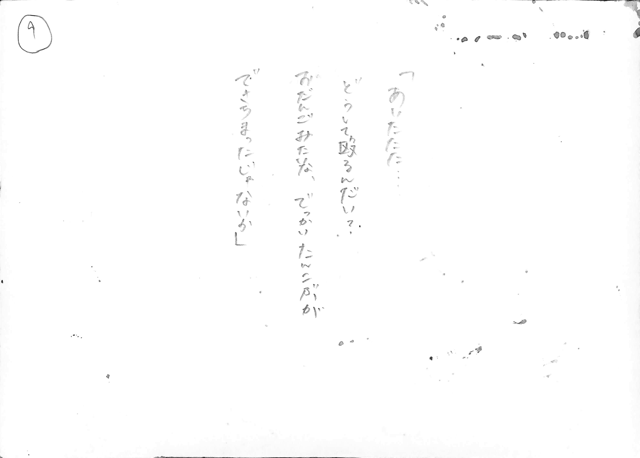 9
「あいたたた…
どうして殴るんだい?
おだんごみたいな、でっかいたんこぶが
できちまったじゃないか」